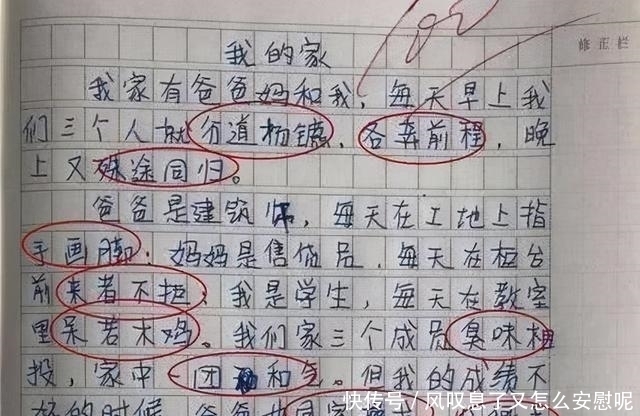 我的家
修正栏
我家有爸爸妈和我，每天早上我
们三个人就分道杨镳，各奔前程，晚
上又殊途同归。
爸爸是建筑师，每天在工地上指
手画脚，妈妈是售货员，每天在柜台
前来者不拒，我是学生，每天在教室
里呆若木鸡。我们家三个成员臭味相
投，家中一团和气。但我的成绩不
好的时候，爸爸也同室
快传号/风叹息了又怎么安慰呢